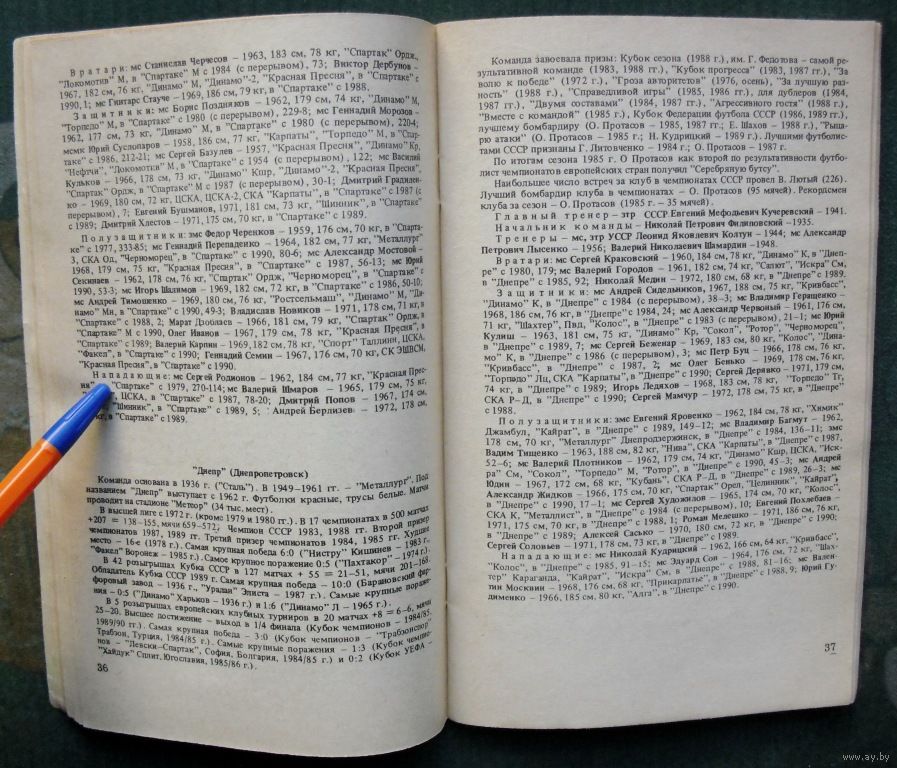 Вратари: мс Станислав Черчесов – 1963, 183 см, 78 кг, "Спартак" Ордж.,
"Локомотив" М, в "Спартаке" М с 1984 (с перерывом), 73; Виктор Дербунов –
1967, 182 см, 76 кг, "Динамо" М, "Динамо"-2, "Красная Пресня", в "Спартаке" с
1990, 1; мс Гинтарс Стауче – 1969, 186 см, 79 кг, в "Спартаке" с 1988.
Защитники: мс Борис Поздняков – 1962, 179 см, 74 кг, "Динамо" М,
"Торпедо" М, в "Спартаке" с 1980 (с перерывом), 229-8; мс Геннадий Морозов –
1962, 177 см, 73 кг, "Динамо" М, в "Спартаке" с 1980 (с перерывом), 220-4;
мсмк Юрий Суслопаров – 1958, 186 см, 77 кг, "Карпаты", "Торпедо" М, в "Спар-
таке" с 1986, 212-21; мс Сергей Базулев – 1957, "Красная Пресня", "Динамо" Кр,
"Нефтчи", "Локомотив" М, в "Спартаке" с 1954 (с перерывом), 122; мс Василий
Кульков – 1966, 178 см, 73 кг, "Динамо" Кшр, "Динамо"-2, "Красная Пресня",
"Спартак" Ордж, в "Спартаке" М с 1987 (с перерывом), 30-1; Дмитрий Градилен-
ко – 1969, 180 см, 72 кг, ЦСКА, ЦСКА-2, СКА "Карпаты", в "Спартаке" с 1987 (с
перерывом), 7; Евгений Бушманов, 1971, 181 см, 73 кг, "Шинник", в "Спартаке"
с 1989; Дмитрий Хлестов – 1971, 175 см, 70 кг, в "Спартаке" с 1989.
Полузащитники: змс Федор Черенков – 1959, 176 см, 70 кг, в "Спарта-
ке" с 1977, 333-85; мс Геннадий Перепаденко – 1964, 182 см, 77 кг, "Металлург"
З, СКА Од, "Черноморец", в "Спартаке" с 1990, 80-6; мс Александр Мостовой –
1968, 179 см, 75 кг, "Красная Пресня", в "Спартаке" с 1987, 56-13; мс Юрий
Секинаев – 1962, 178 см, 76 кг, "Спартак" Ордж, "Черноморец", в "Спартаке" с
1990, 53-3; мс Игорь Шалимов – 1969, 182 см, 72 кг, в "Спартаке" с 1986, 50-10;
мс Андрей Тимошенко – 1969, 180 см, 76 кг, "Ростсельмаш", "Динамо" М, "Ди-
намо" Мн, в "Спартаке" с 1990, 49-3; Владислав Новиков – 1971, 178 см, 71 кг, в
"Спартаке" с 1988, 2; Марат Дзоблаев – 1966, 181 см, 79 кг, "Спартак" Ордж, в
"Спартаке" М с 1990, Олег Иванов – 1967, 179 см, 78 кг, "Красная Пресня", в
"Спартаке" с 1989; Валерий Карпин – 1969, 182 см, 78 кг, "Спорт" Таллинн, ЦСКА,
"Факел", в "Спартаке" с 1990; Геннадий Семин – 1967, 176 см, 70 кг, СК ЭШВСМ,
"Красная Пресня", в "Спартаке" с 1990.
Нападающие: мс Сергей Родионов – 1962, 184 см, 77 кг, "Красная Прес-
ня", в "Спартаке" с 1979, 270-114; мс Валерий Шмаров – 1965, 179 см, 75 кг,
ЦСКА, в "Спартаке" с 1987, 78-20; Дмитрий Попов – 1967, 174 см,
"Шинник", в "Спартаке" с 1989, 5; Андрей Берлизев – 1972, 178 см,
кг, в "Спартаке" с 1989.
"Днепр" (Днепропетровск)
Команда основана в 1936 г. ("Сталь"). В 1949–1961 гг. – "Металлург". Под
названием "Днепр" выступает с 1962 г. Футболки красные, трусы белые. Матчи
проводит на стадионе "Метеор" (34 тыс. мест).
В высшей лиге с 1972 г. (кроме 1979 и 1980 гг.). В 17 чемпионатах в 500 матчах
+207 = 138–155, мячи 659–572; Чемпион СССР 1983, 1988 гг. Второй призер
чемпионатов 1987, 1989 гг. Третий призер чемпионатов 1984, 1985 гг. Худшее
место – 16-е (1978 г.). Самая крупная победа 6:0 ("Нистру" Кишинев – 1983 г.,
"Факел" Воронеж – 1985 г.). Самое крупное поражение 0:5 ("Пахтакор" – 1974 г.).
В 42 розыгрышах Кубка СССР в 127 матчах + 55 = 21–51, мячи 201–163.
Обладатель Кубка СССР 1989 г. Самая крупная победа – 10:0 (Барановский фар-
форовый завод – 1936 г., "Уралан" Элиста – 1987 г.). Самые крупные пораже-
ния – 0:5 ("Динамо" Харьков – 1936 г.) и 1:6 ("Динамо" Л – 1965 г.).
В 5 розыгрышах европейских клубных турниров в 20 матчах +8 = 6–6, мячи
25–20. Высшее достижение – выход в 1/4 финала (Кубок чемпионов – 1984/85,
1989/90 гг.). Самая крупная победа – 3:0 (Кубок чемпионов – "Трабзонспор"
Трабзон, Турция, 1984/85 г.). Самые крупные поражения – 1:3 (Кубок чемпио-
нов – "Левски–Спартак", София, Болгария, 1984/85 г.) и 0:2 (Кубок УЕФА –
"Хайдук" Сплит, Югославия, 1985/86 г.).
36
Команда завоевала призы: Кубок сезона (1988 г.), им. Г. Федотова – самой ре-
зультативной команде (1983, 1988 гг.), "Кубок прогресса" (1983, 1987 гг.), "За
волю к победе" (1972 г.), "Гроза авторитетов" (1976, осень), "За лучшую раз-
ность" (1988 г.), "Справедливой игры" (1985, 1986 гг.), для дублеров (1984,
1987 гг.), "Двумя составами" (1984, 1987 гг.), "Агрессивного гостя" (1988 г.),
"Вместе с командой" (1985 г.), Кубок Федерации футбола СССР (1986, 1989 гг.),
лучшему бомбардиру (О. Протасов – 1985, 1987 гг.; Е. Шахов – 1988 г.), "Рыца-
рю атаки" (О. Протасов – 1985 г.; Н. Кудрицкий – 1989 г.). Лучшими футболис-
тами СССР признаны Г. Литовченко – 1984 г.; О. Протасов – 1987 г.
По итогам сезона 1985 г. О. Протасов как второй по результативности футбо-
лист чемпионатов европейских стран получил "Серебряную бутсу".
Наибольшее число встреч за клуб в чемпионатах СССР провел В. Лютый (226).
Лучший бомбардир клуба в чемпионатах – О. Протасов (95 мячей). Рекордсмен
клуба за сезон – О. Протасов (1985 г. – 35 мячей).
Главный тренер – зтр СССР Евгений Мефодьевич Кучеревский – 1941.
Начальник команды – Николай Петрович Филиповский –1935.
Тренеры – мс, зтр УССР Леонид Яковлевич Колтун – 1944; мс Александр
Петрович Лысенко – 1956; Валерий Николаевич Шамардин –1948.
Вратари: мс Сергей Краковский – 1960, 184 см, 78 кг, "Динамо" К, в "Днеп-
ре" с 1980, 179; мс Валерий Городов – 1961, 182 см, 74 кг, "Салют", "Искра" См,
в "Днепре" с 1985, 92; Николай Медин – 1972, 180 см, 68 кг, в "Днепре" с 1989.
Защитники: мс Андрей Сидельников, 1967, 188 см, 75 кг, "Кривбасс",
"Динамо" К, в "Днепре" с 1984 (с перерывом), 38–3; мс Владимир Геращенко –
1968, 186 см, 76 кг, в "Днепре" с 1984, 24; мс Александр Червоный – 1961, 176 см,
71 кг, "Шахтер", Пвд, "Колос", в "Днепре" с 1983 (с перерывом), 21–1; мс Юрий
Кулиш – 1963, 181 см, 75 кг, "Динамо" Кр, "Сокол", "Ротор", "Черноморец",
в "Днепре" с 1989, 7; мс Сергей Беженар – 1969, 183 см, 80 кг, "Колос", "Дина-
мо" К, в "Днепре" с 1986 (с перерывом), 3; мс Петр Буц – 1966, 178 см, 76 кг,
"Кривбасс", в "Днепре" с 1987, 2; мс Олег Бенько – 1969, 178 см, 76 кг,
"Торпедо" Лц, СКА "Карпаты", в "Днепре" с 1990; Сергей Дерявко – 1971, 179 см,
74 кг, в "Днепре" с 1989; Игорь Ледяхов – 1968, 183 см, 78 кг, "Торпедо" Тг,
СКА Р–Д, в "Днепре" с 1990; Сергей Мамчур – 1972, 182 см, 75 кг, в "Днепре"
с 1988.
Полузащитники: змс Евгений Яровенко – 1962, 184 см, 78 кг, "Химик"
Джамбул, "Кайрат", в "Днепре" с 1989, 149–12; мс Владимир Багмут – 1962,
178 см, 70 кг, "Металлург" Днепродзержинск, в "Днепре" с 1984, 136–11; змс
Вадим Тищенко – 1963, 188 см, 82 кг, "Нива", СКА "Карпаты", в "Днепре" с 1987,
52–6; мс Валерий Плотников – 1962, 179 см, 74 кг, "Динамо" Кшр, ЦСКА, "Иск-
ра" См, "Сокол", "Торпедо" М, "Ротор", в "Днепре" с 1990, 45–3; мс Андрей
Юдин – 1967, 172 см, 68 кг, "Кубань", СКА Р–Д, в "Днепре" с 1989, 26–3; мс
Александр Жидков – 1966, 175 см, 70 кг, "Спартак" Орел, "Целинник", "Кайрат",
в "Днепре" с 1990, 17–1; мс Сергей Художилов – 1965, 174 см, 70 кг, "Колос",
СКА К, "Металлист", в "Днепре" с 1984 (с перерывом), 10; Евгений Похлебаев –
1971, 175 см, 70 кг, в "Днепре" с 1988, 1; Роман Мелешко – 1971, 186 см, 76 кг,
в "Днепре" с 1989; Алексей Сасько – 1970, 180 см, 72 кг, в "Днепре" с 1990;
Сергей Соловьев – 1971, 178 см, 73 кг, в "Днепре" с 1989.
Нападающие: мс Николай Кудрицкий – 1962, 166 см, 64 кг, "Кривбасс",
"Колос", в "Днепре" с 1985, 91–15; мс Эдуард Сон – 1964, 176 см, 72 кг, "Шах-
тер" Караганда, "Кайрат", "Искра" См, в "Днепре" с 1988, 81–16; мс Вален-
тин Москвин – 1968, 176 см, 68 кг, "Прикарпатье", в "Днепре" с 1988, 9; Юрий Гу-
дименко – 1966, 185 см, 80 кг, "Алга", в "Днепре" с 1990.
37
www.ay.by